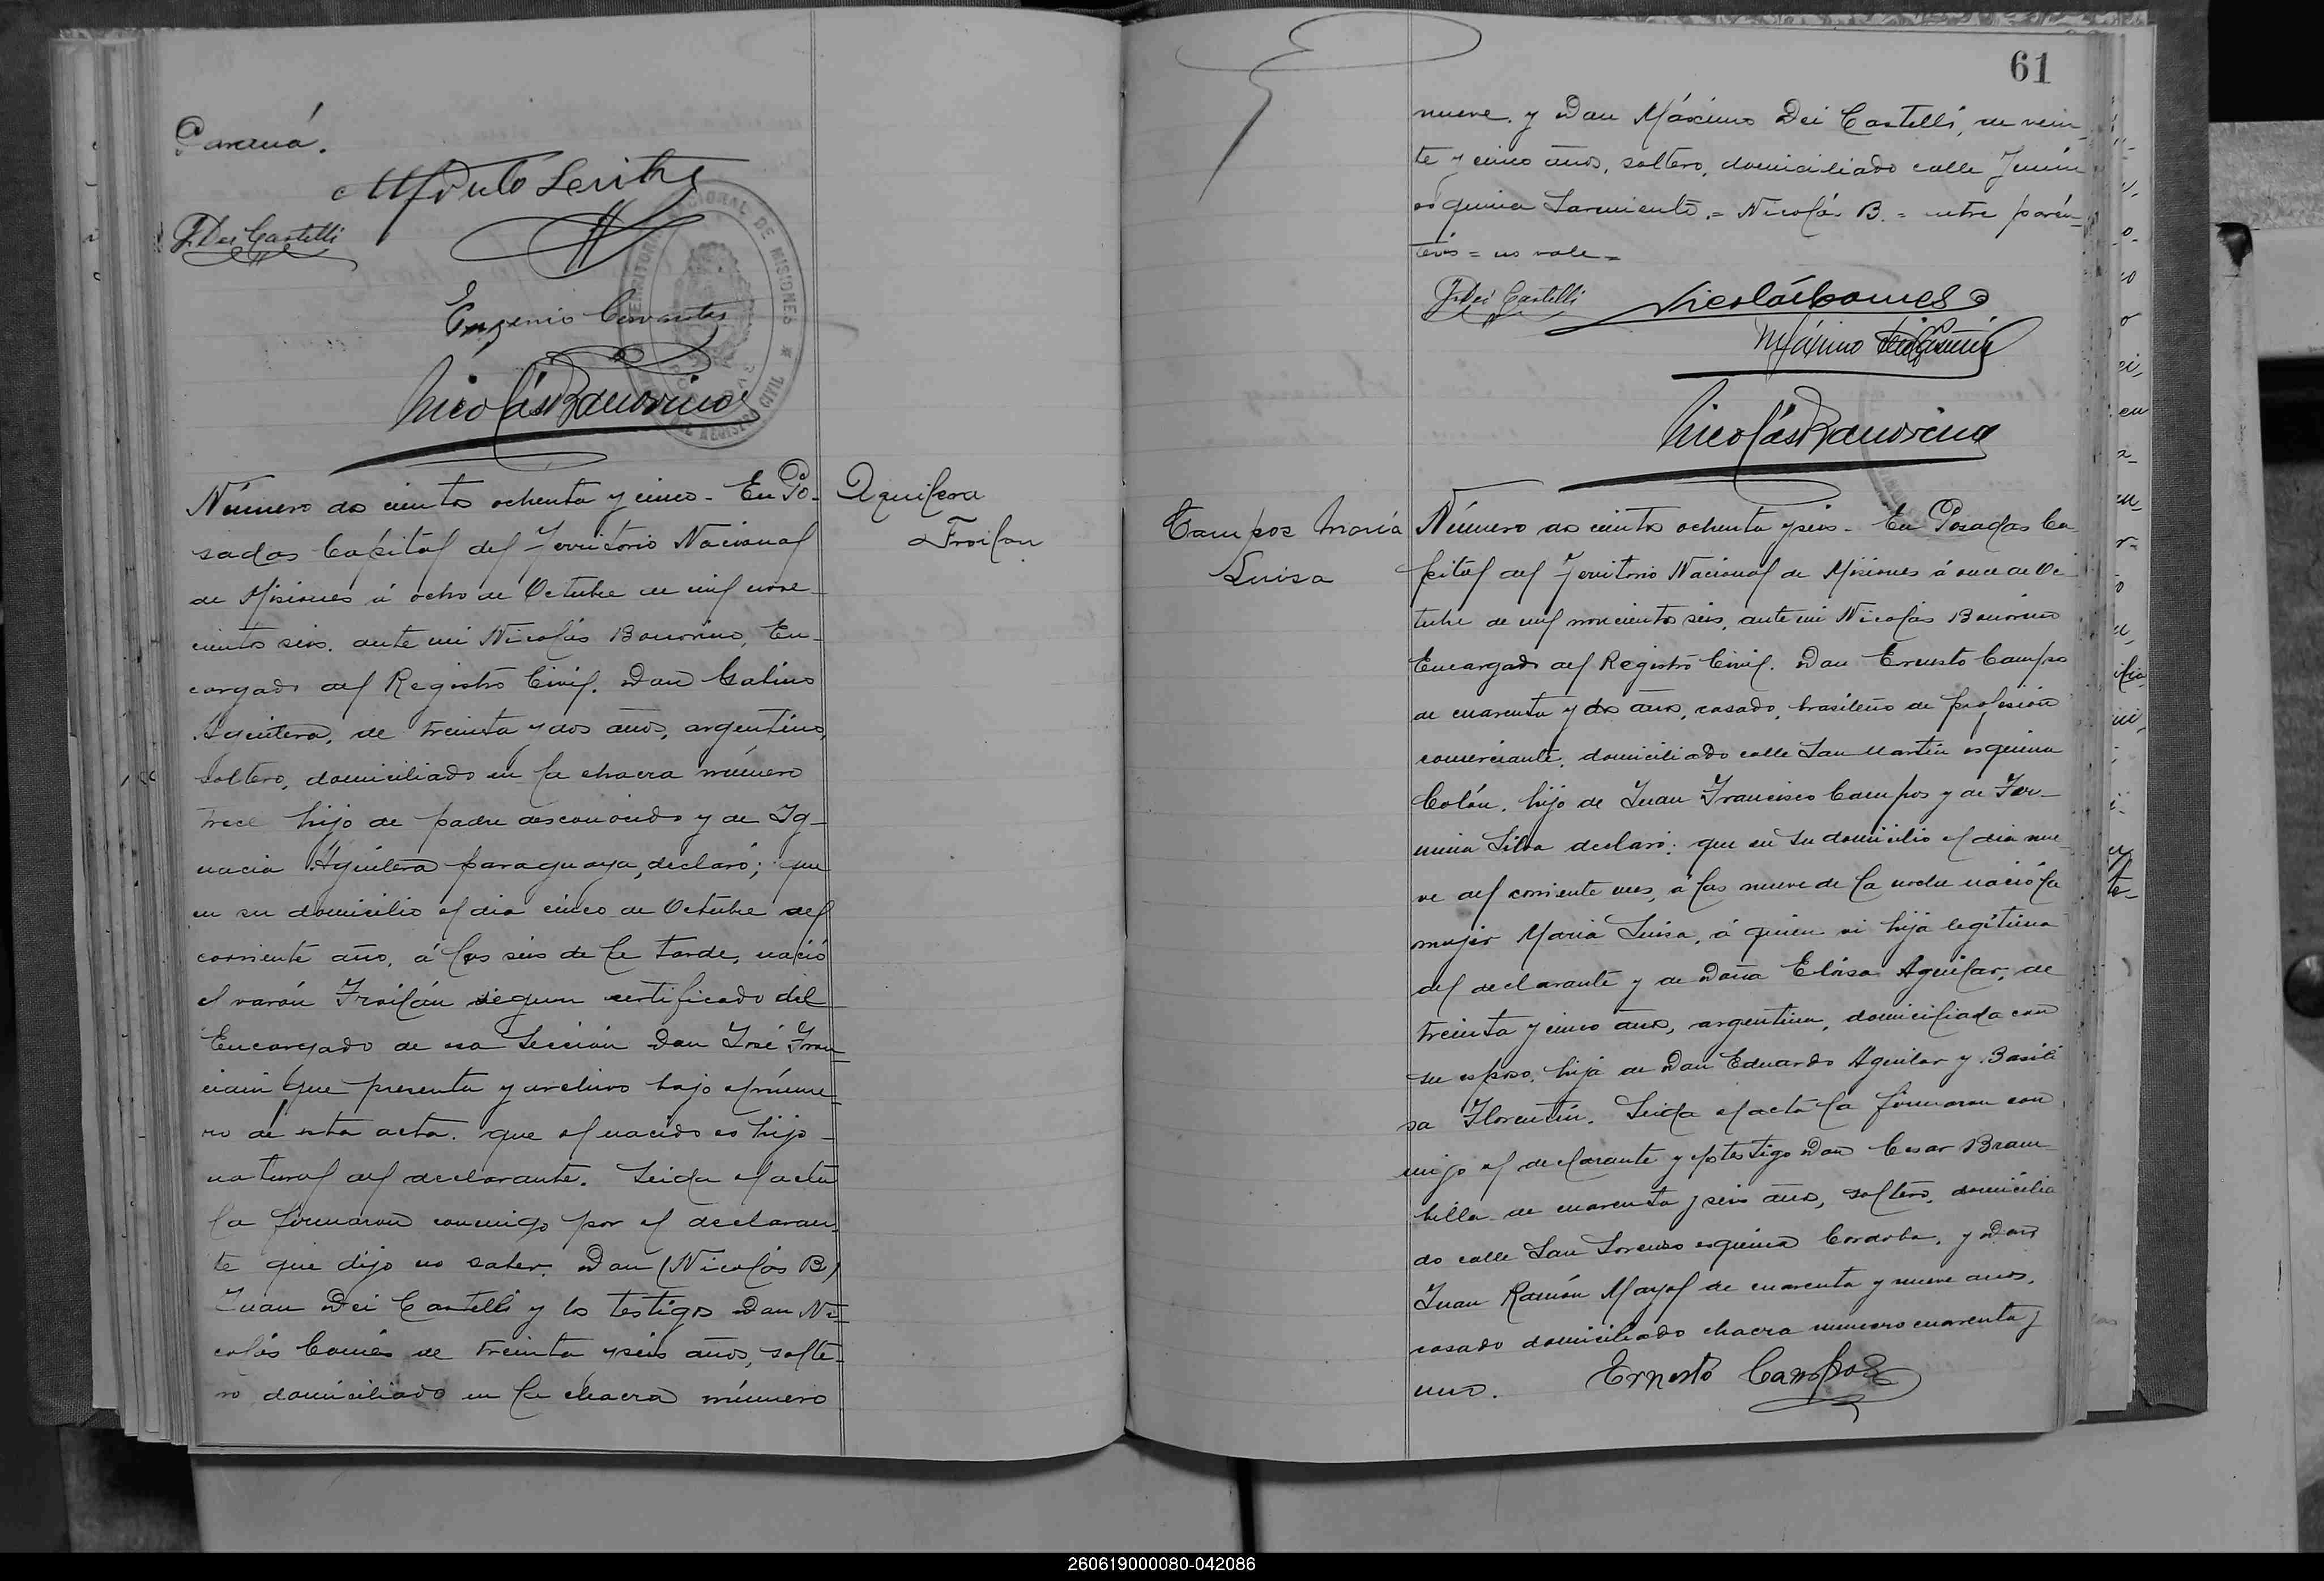 Paraná.
J. Dei Castelli
TERRITORIO NACIONAL DE MISIONES
REGISTRO CIVIL
Eugenio Cervantes
Nicolás Bonorino
Número dos cientos ochenta y cinco - En Po-
sadas Capital del Territorio Nacional
de Misiones á ocho de Octubre de mil nove-
cientos seis, ante mi Nicolás Bonorino, En-
cargado del Registro Civil. Don Galino
Aguilera, de treinta y dos años, argentino,
soltero, domiciliado en la chacra número
trece hijo de padre desconocido y de Ig-
nacia Aguilera paraguaya, declaró; que
en su domicilio el dia cinco de Octubre del
corriente año, á las seis de la tarde, nació
el varón Froilán segun certificado del
Encargado de esa Sección Don José Fran
que presenta y archivo bajo el núme-
ro de esta acta. que el nacido es hijo
natural del declarante. Leida el acta
la firmaron conmigo por el declaran-
te que dijo no saber. Don (Nicolás B)
Juan Dei Castelli y los testigos Don Ni-
colás Comes de treinta y seis años, solte-
ro domiciliado en la chacra número
Aguilera
Froilan
61
nueve. y Don Máximo Dei Castelli, de vein-
te y cinco años, soltero, domiciliado calle Junín
esquina Sarmiento. = Nicolás B. = entre parén-
tesis = no vale =
J. Dei Castelli
Nicolás Comes
Máximo Dei Castelli
Nicolás Bonorino
Campos María
Luisa
Número dos cientos ochenta y seis - En Posadas Ca
pital del Territorio Nacional de Misiones á once de Oc
tubre de mil novecientos seis, ante mi Nicolás Bonorino
Encargado del Registro Civil. Don Ernesto Campos
de cuarenta y dos años, casado, brasileño de profesión
comerciante, domiciliado calle San Martín esquina
Colón. hijo de Juan Francisco Campos y de Fer-
mina Silva declaró: que en su domicilio el dia nue-
ve del corriente mes, á las nueve de la noche nació la
mujer María Luisa, á quien vi hija legítima
del declarante y de Doña Eloisa Aguilar, de
treinta y cinco años, argentina, domiciliada con
su esposo, hija de Don Eduardo Aguilar y Basili
sa Florentín. Leida el acta la firmaron con
migo el declarante y los testigo Don Cesar Bram
billa de cuarenta y seis años, soltero, domicilia
do calle San Lorenzo esquina Cordoba, y Don
Juan Ramón Mayol de cuarenta y nueve años,
casado domiciliado chacra numero cuarenta y
uno. Ernesto Campos
260619000080-042086